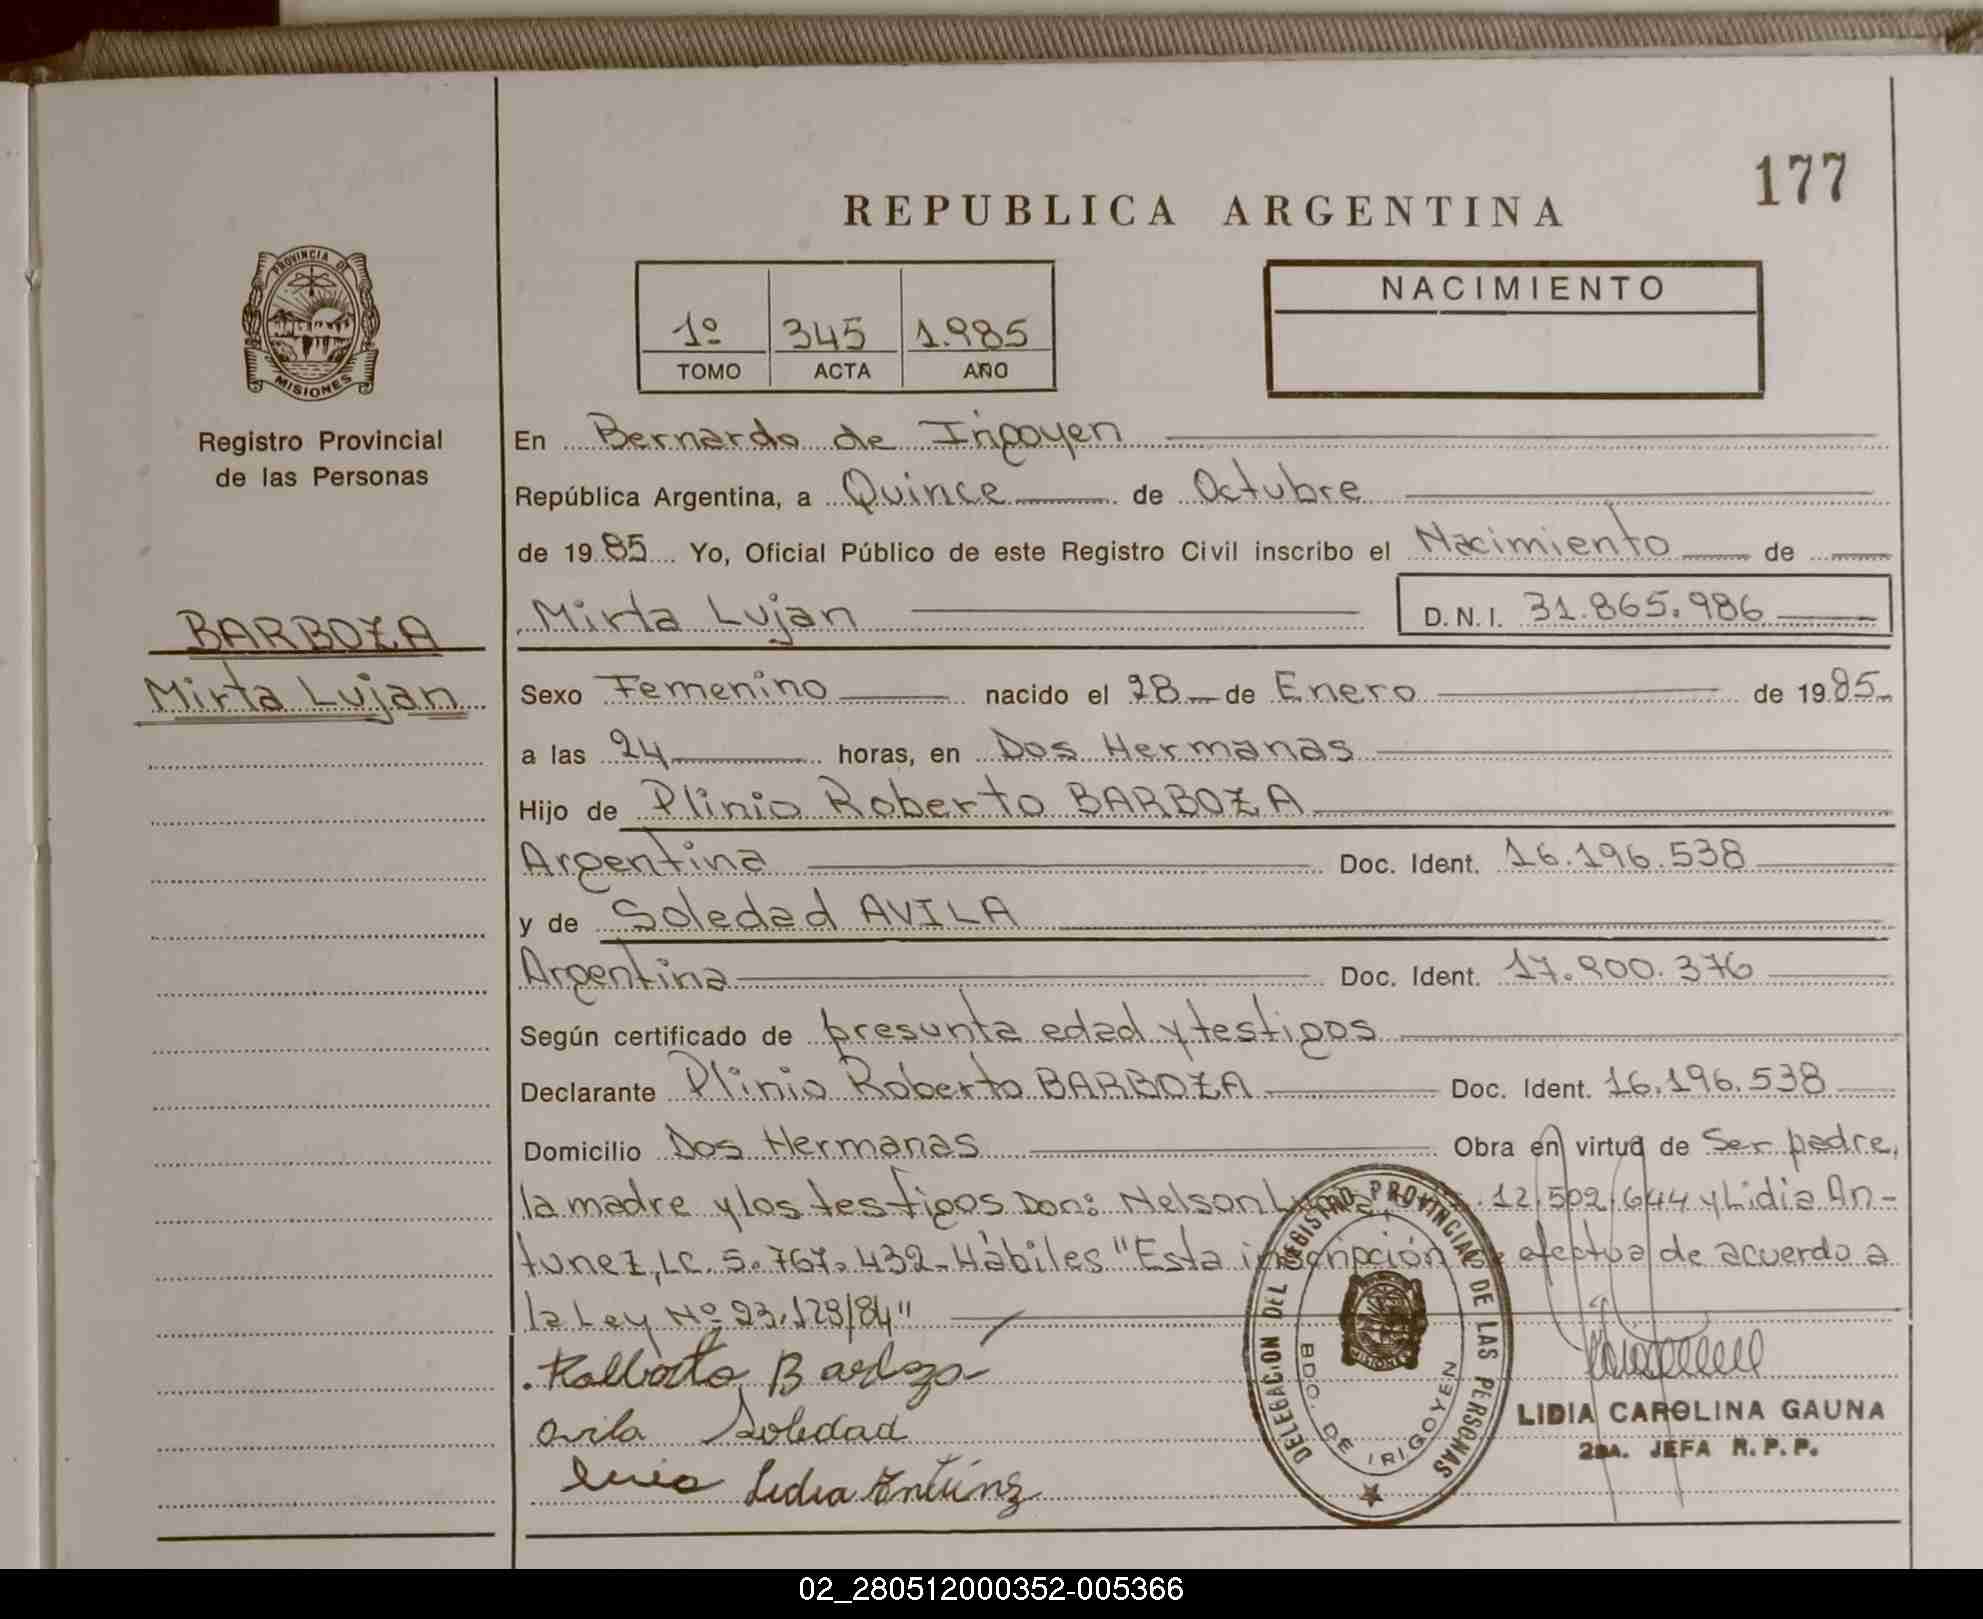 177
REPUBLICA ARGENTINA
PROVINCIA DE
MISIONES
Registro Provincial
de las Personas
BARBOZA
Mirta Lujan
1º 345 1.985
TOMO ACTA AÑO
NACIMIENTO
En Bernardo de Irigoyen
República Argentina, a Quince de Octubre
de 1985 Yo, Oficial Público de este Registro Civil inscribo el Nacimiento de
Mirta Lujan D.N.I. 31.865.986
Sexo Femenino nacido el 28 de Enero de 1985
a las 24 horas, en Dos Hermanas
Hijo de Plinio Roberto BARBOZA
Argentina Doc. Ident. 16.196.538
y de Soledad AVILA
Argentina Doc. Ident. 17.900.376
Según certificado de presunta edad y testigos
Declarante Plinio Roberto BARBOZA Doc. Ident. 16.196.538
Domicilio Dos Hermanas Obra en virtud de Ser padre,
la madre y los testigos Don: Nelson 12.502.644 y Lidia An-
tunez, LC. 5.767.432- Hábiles "Esta inscripción efectua de acuerdo a
la Ley Nº 23.128/84"
Barboza
avila Soledad
Lidia
DELEGACION DEL REGISTRO PROVINCIAL DE LAS PERSONAS
BDO. DE IRIGOYEN
MISIONES
LIDIA CAROLINA GAUNA
2DA. JEFA R.P.P.
02_280512000352-005366